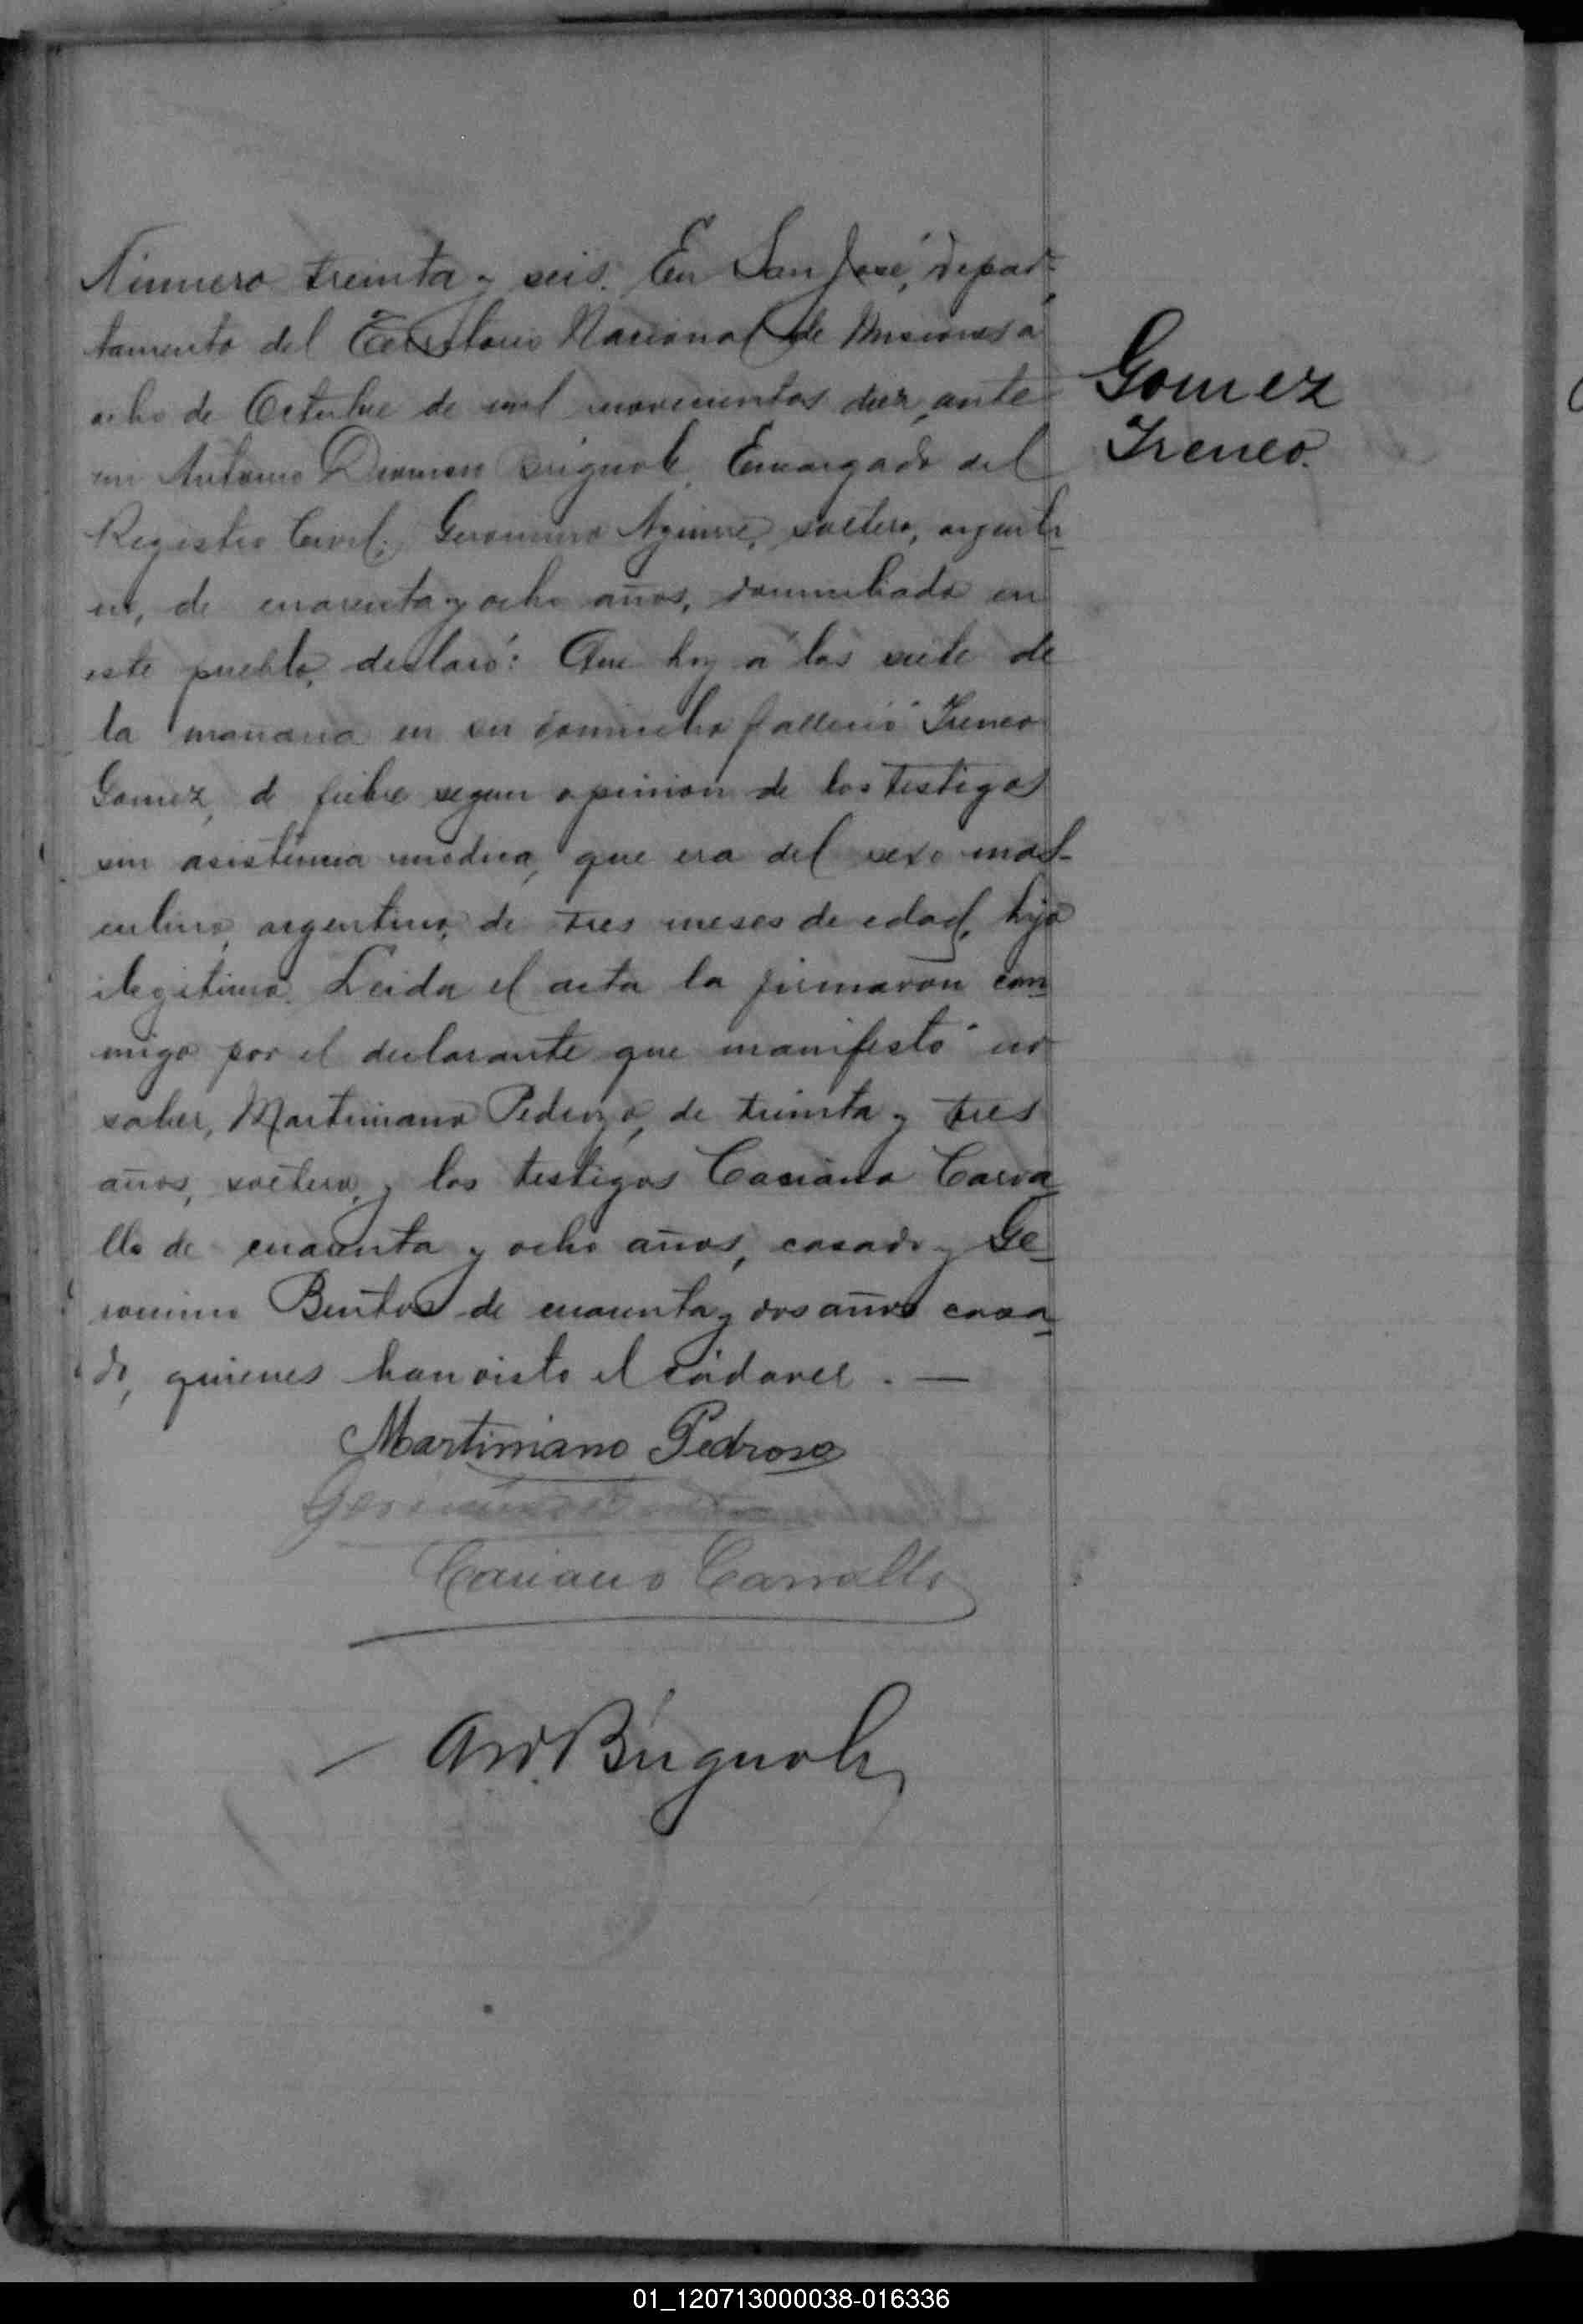 Número treinta y seis. En San José, depar-
tamento del Territorio Nacional de Misiones a
ocho de Octubre de mil novecientos diez, ante
mi Antonio Brignole, Encargado del
Registro Civil; Geronimo Aguirre, soltero, argenti-
no, de cuarenta y ocho años, domiciliado en
este pueblo, declaró: Que hoy á las siete de
la mañana en su domicilio falleció Ireneo
Gomez, de fiebre segun opinion de los testigos
sin asistencia medica, que era del sexo mas-
culino, argentino, de tres meses de edad, hijo
ilegitimo. Leida el acta la firmaron con-
migo por el declarante que manifestó no
saber, Martimiano Pedrozo, de treinta y tres
años, soltero, y los testigos Casiano Carva-
llo de cuarenta y ocho años, casado y Ge-
ronimo Bentos de cuarenta y dos años casa-
do, quienes han visto el cádaver. —
Martimiano Pedroso
Casiano Carvallo
Brignole
Gomez
Ireneo.
01_120713000038-016336